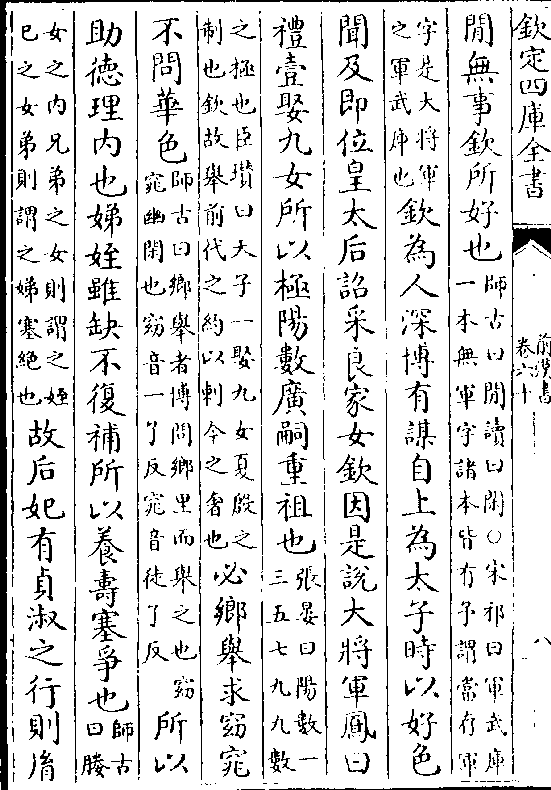 欽定四庫全書
前漢書
卷六十
八
閒無事欽所好也師古曰閒讀曰閑○宋祁曰軍武庫一本無軍字諸本皆有予謂當存軍
字是大將軍之軍武庫也欽為人深博有謀自上為太子時以好色
聞及即位皇太后詔采良家女欽因是說大將軍鳳曰
禮壹娶九女所以極陽數廣嗣重祖也張晏曰陽數一三五七九九數
之極也臣瓚曰天子一娶九女夏殷之制也欽故舉前代之約以刺今之奢也必鄉舉求窈窕
不問華色師古曰鄉舉者博問鄉里而舉之也窈窕幽閑也窈音一了反窕音徒了反所以
助徳理内也娣姪雖缺不復補所以養壽塞爭也師古曰媵
女之内兄弟之女則謂之姪已之女弟則謂之娣塞絶也故后妃有貞淑之行則胤